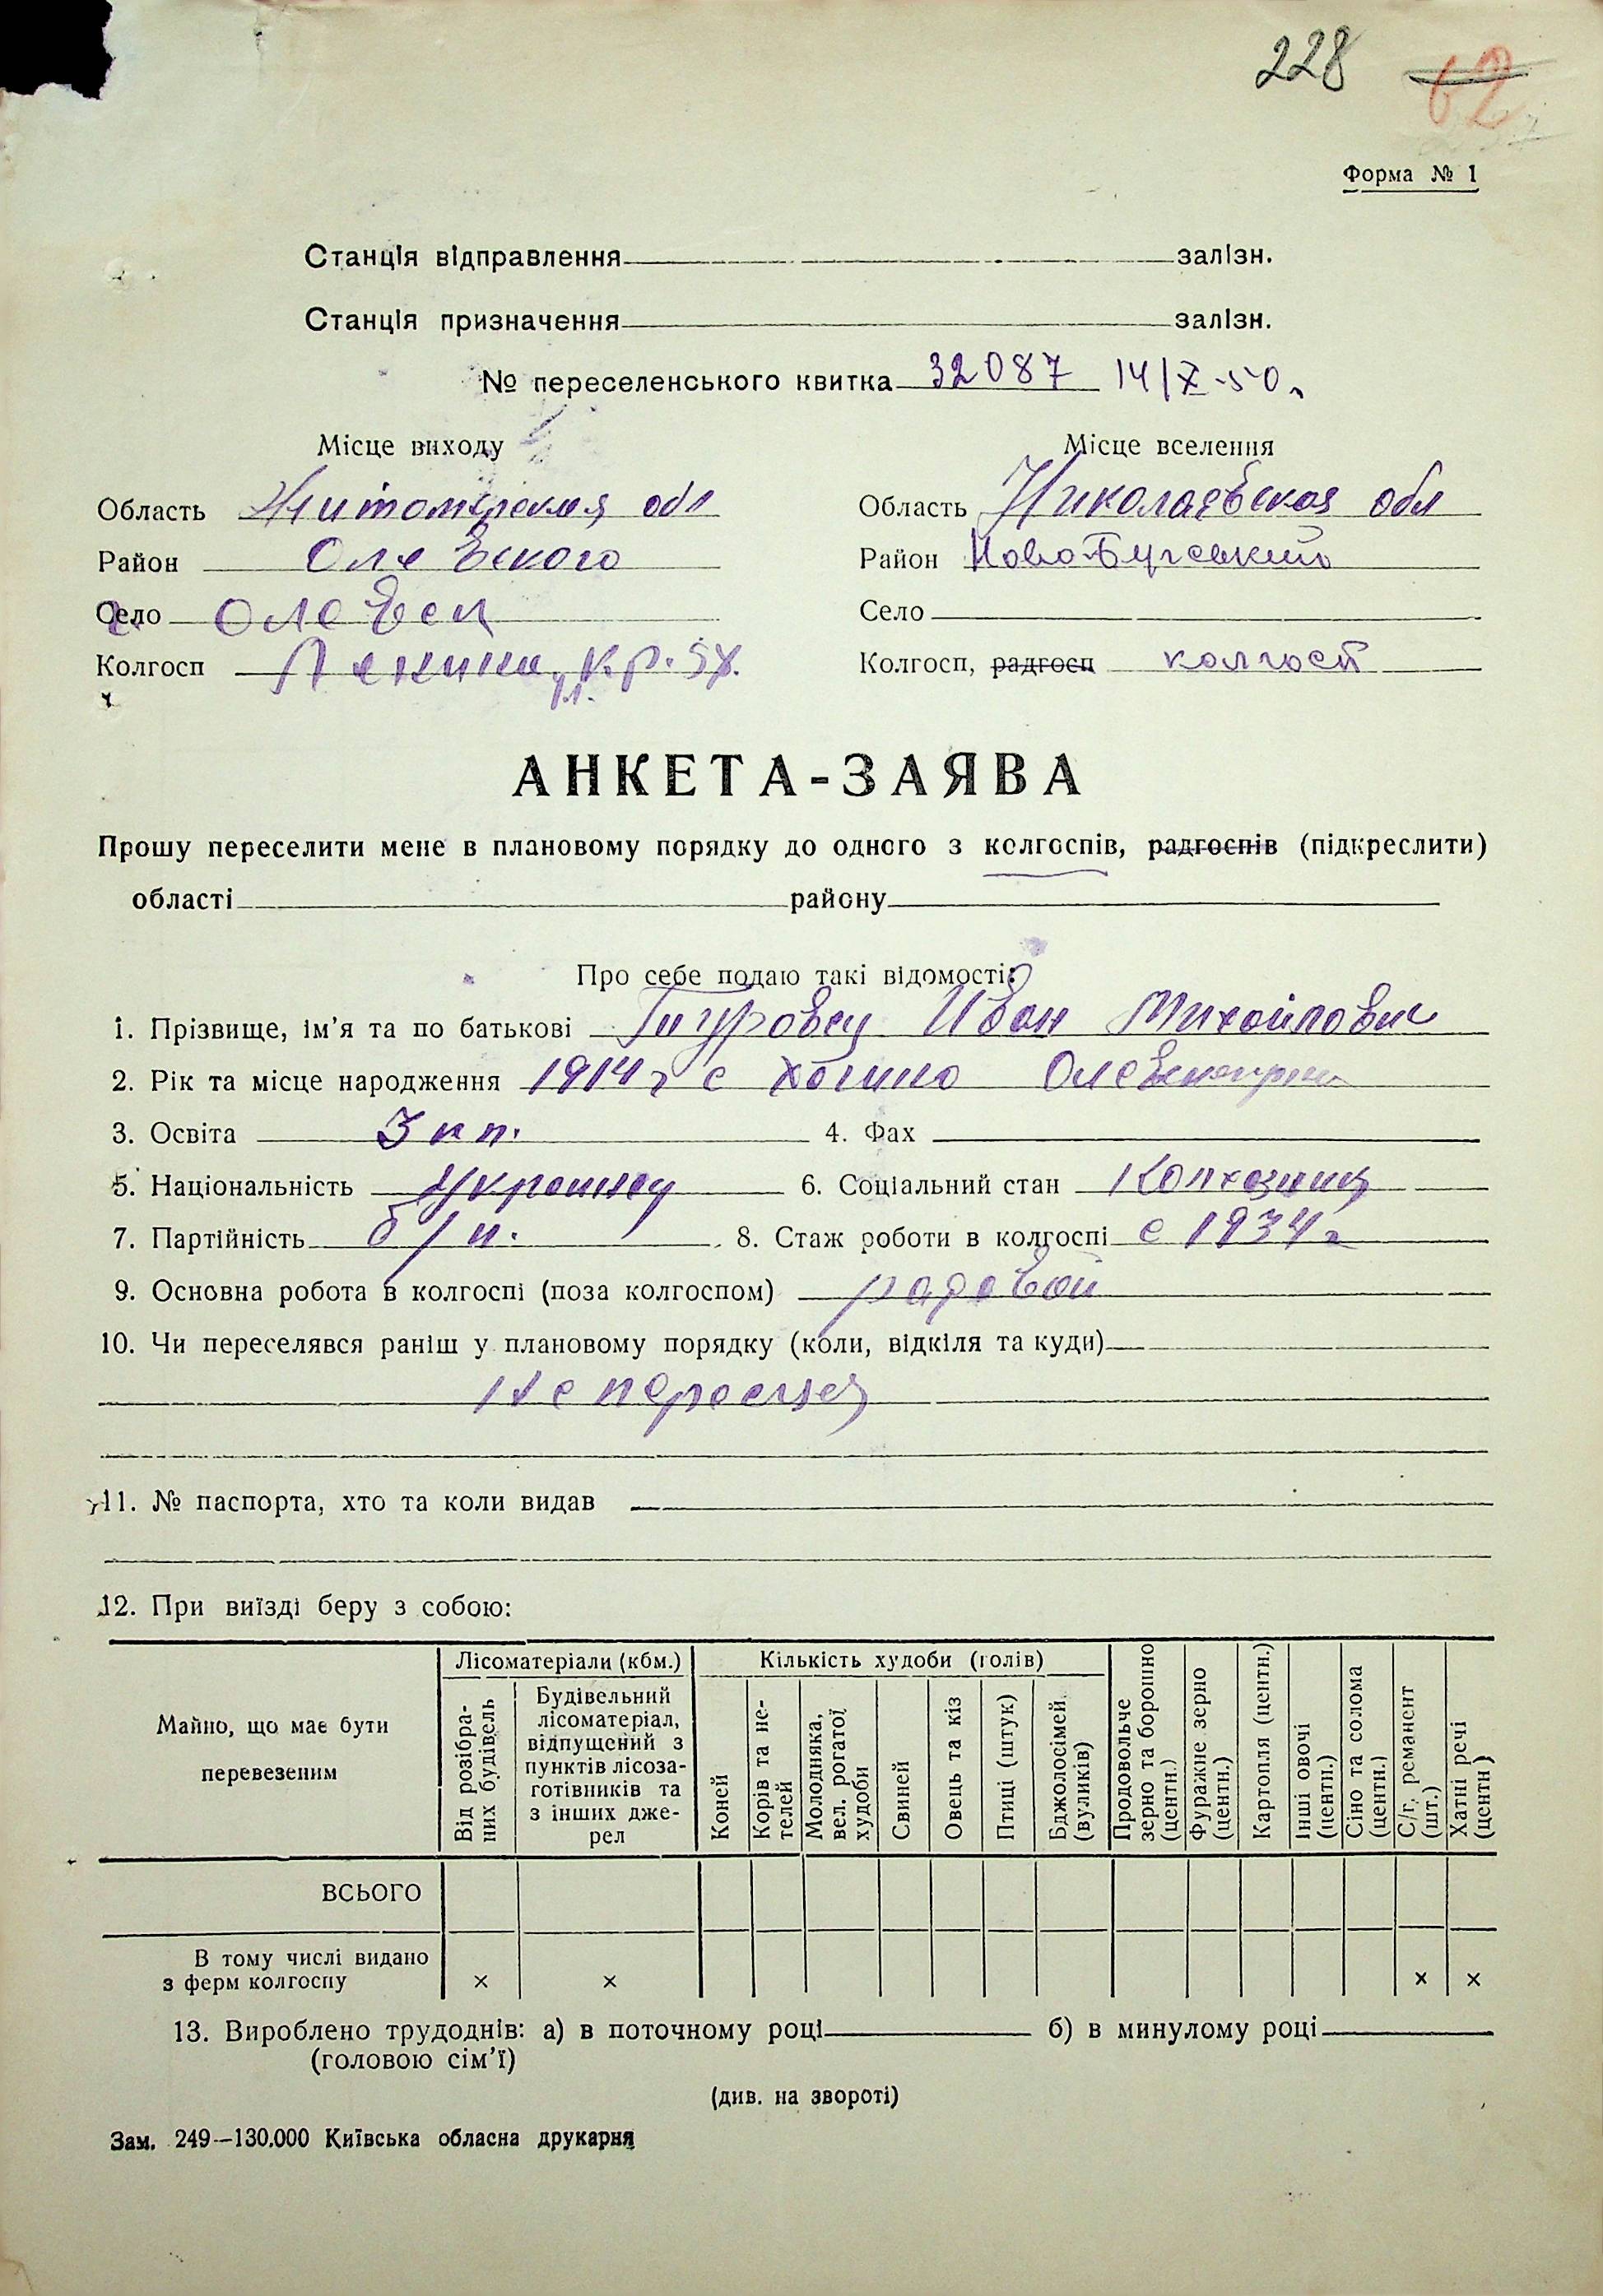 228 62
Форма № 1
Станція відправлення залізн.
Станція призначення залізн.
№ переселенського квитка 32087 14/X-50 г.
Місце виходу Місце вселення
Область Житомирская обл Область Николаевская обл
Район Олевского Район Ново-Бугський
Село Олевск Село
Колгосп Ленина, Колгосп, радгосп колгосп
АНКЕТА-ЗАЯВА
Прошу переселити мене в плановому порядку до одного з колгоспів, радгоспів (підкреслити)
області району
Про себе подаю такі відомості:
1. Прізвище, ім'я та по батькові Туровец Иван Михайлович
2. Рік та місце народження 1914 г с Хочино Олевского р-на
3. Освіта 3 кл. 4. Фах
5. Національність Украинец 6. Соціальний стан Колхозник
7. Партійність б/п. 8. Стаж роботи в колгоспі с 1934 г
9. Основна робота в колгоспі (поза колгоспом) рядовой
10. Чи переселявся раніш у плановому порядку (коли, відкіля та куди)
Не
11. № паспорта, хто та коли видав
12. При виїзді беру з собою:
Майно, що має бути перевезеним
Лісоматеріали (кбм.) Кількість худоби (голів)
Від розібраних будівель
Будівельний лісоматеріал, відпущений з пунктів лісозаготівників та з інших джерел
Коней
Корів та нетелей
Молодняка, вел. рогатої худоби
Свиней
Овець та кіз
Птиці (штук)
Бджолосімей (вуликів)
Продовольче зерно та борошно (центн.)
Фуражне зерно (центн.)
Картопля (центн.)
Інші овочі (центн.)
Сіно та солома (центн.)
С/г. реманент (шт.)
Хатні речі (центн)
ВСЬОГО
В тому числі видано
з ферм колгоспу × × × ×
13. Вироблено трудоднів: а) в поточному році б) в минулому році
(головою сім'ї)
(див. на звороті)
Зам. 249—130.000 Київська обласна друкарня